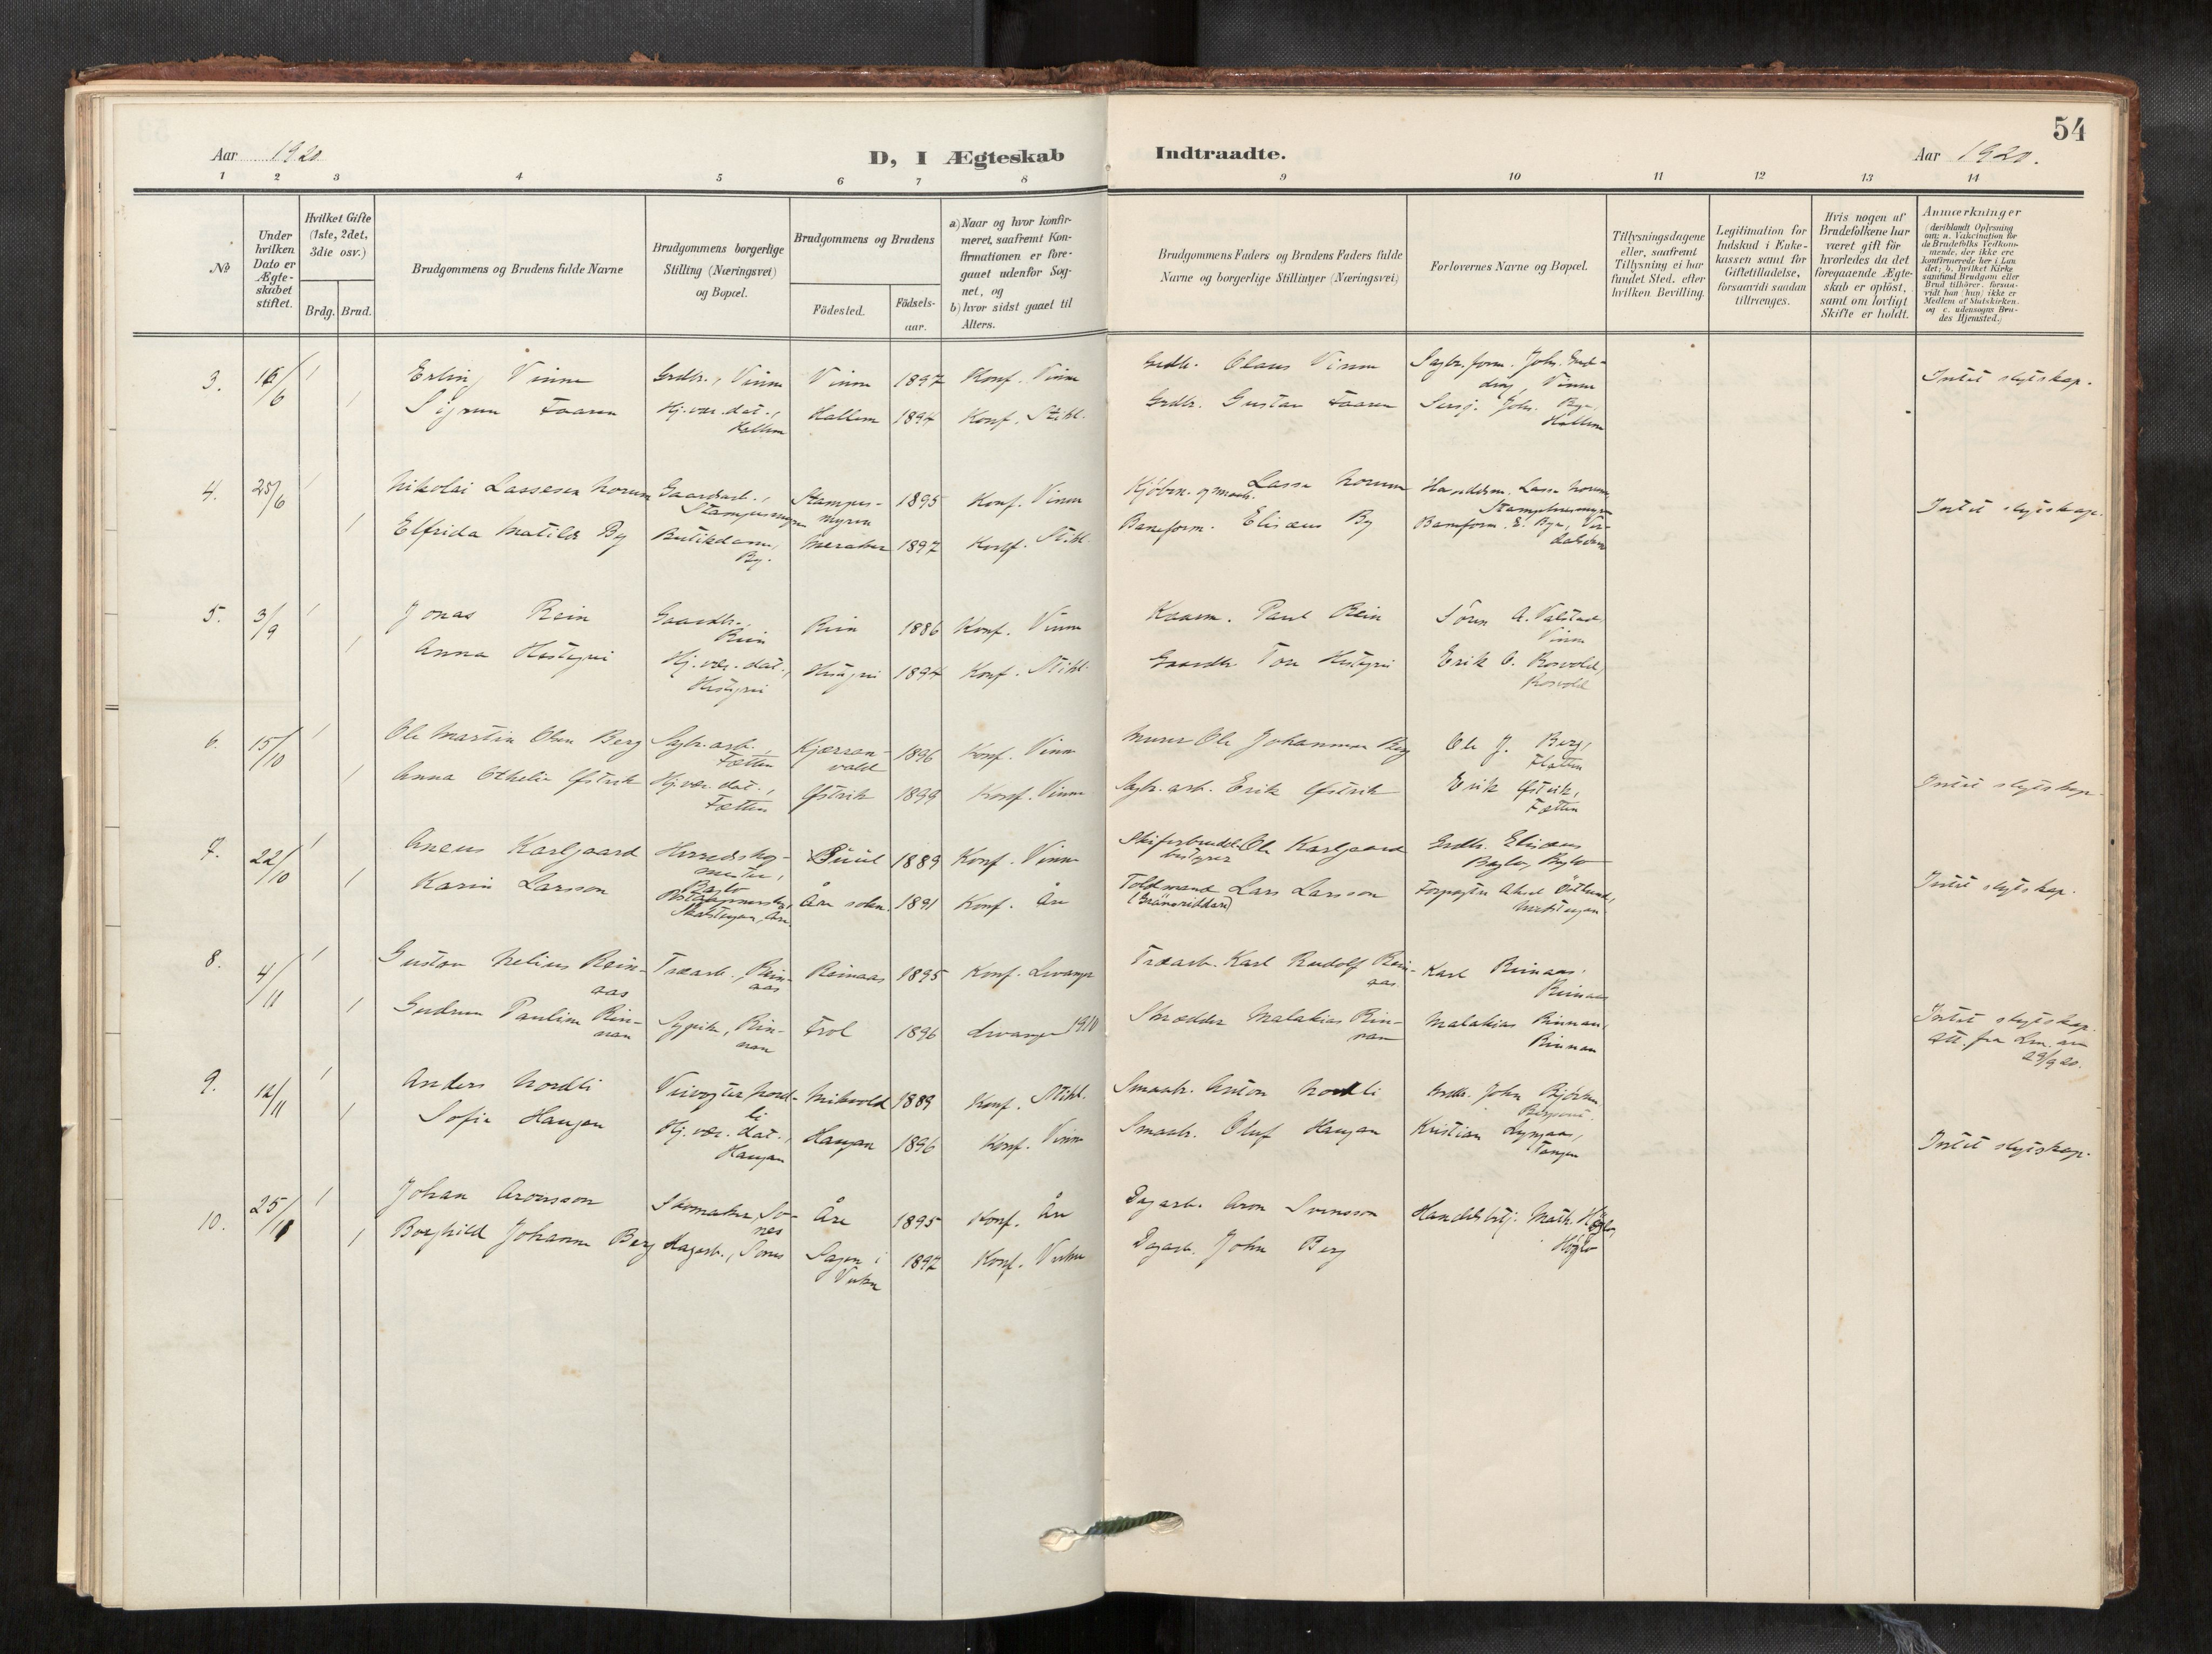 54
Aar 1920
D, I Ægteskab Indtraadte.
Aar 1920.
1 2 3 4 5 6 7 8 9 10 11 12 13 14
No
Under hvilken Dato er Ægteskabet stiftet.
Hvilket Gifte (1ste, 2det, 3die osv.)
Brdg. Brud.
Brudgommens og Brudens fulde Navne
Brudgommens borgerlige Stilling (Næringsvei) og Bopæl.
Brudgommens og Brudens
Födested. Födsels-aar.
a) Naar og hvor konfir-
meret, saafremt Kon-
firmationen er fore-
gaaet udenfor Sog-
net, og
b) hvor sidst gaaet til
Alters.
Brudgommens Faders og Brudens Faders fulde
Navne og borgerlige Stillinger (Næringsvei)
Forlovernes Navne og Bopæl.
Tillysningsdagene
eller, saafremt
Tillysning ei har
fundet Sted, efter
hvilken Bevilling.
Legitimation for
Indskud i Enke-
kassen samt for
Giftetilladelse,
forsaavidt saadan
tiltrænges.
Hvis nogen af
Brudefolkene har
været gift för
hvorledes da det
foregaaende Ægte-
skab er oplöst,
samt om lovligt
Skifte er holdt.
Anmærkninger
(deriblandt Oplysning
om: a. Vakcination for
de Brudefolks Vedkom-
mende, der ikke ere
konfirmerede her i Lan
det; b. hvilket Kirke
samfund Brudgom eller
Brud tilhörer, forsaa-
vidt han (hun) ikke er
Medlem af Statskirken.
og c. udensogns Bru-
des Hjemsted.)
3. 16/6 1 Erling Vinne Grdbr., Vinne Vinne 1897 Konf. Vinne Grdbr. Olaus Vinne Sagbr.form. Joh.
Vinne
1 Sigrun Faaren Hj.vær. dat., Hallem 1894 Konf. Stikl. Grdbr. Gustav Faaren Joh. Bye,
Hallem Hallem
Intet slegtskap.
4. 25/6 1 Nikolai Lassesen Norum Gaardarb., Stampes- 1895 Konf. Vinne Kjöbm. og Lasse Norum Handelsm. Lasse Norum,
Stampesmyren myren
1 Elfrida Matilde By Butikdame, Meraker 1897 Konf. Stikl. Baneform. Eliseus By Baneform. E. Bye, Ver-
By. dalsøren
Intet slegtskap.
5. 3/9 1 Jonas Rein Gaardbr., Rein 1886 Konf. Vinne Kaarm. Paul Rein Sören A. Valstad,
Rein Vinne
1 Anna Hestegrei Hj.vær. dat., Hestegrei 1894 Konf. Stikl. Gaardbr. Tore Hestegrei Erik O. Rosvold,
Hestegrei Rosvold
6. 15/10 1 Ole Martin Olsen Berg Sagbr.arb., Kjærran- 1896 Konf. Vinne Murer Ole Johannesen Berg Ole J. Berg,
Fætten vald Flatten
1 Anna Othelie Østvik Hj.vær. dat., Østvik 1899 Konf. Vinne Sagbr. arb. Erik Østvik Erik Østvik,
Fætten Fætten
Intet slegtskap.
7. 22/10 1 Aneus Karlgaard Herredskog- Suul 1889 Konf. Vinne Skiferbrudd- Ole Karlgaard Grdbr. Eliseus
mester, bestyrer Baglo, Baglo
Baglo
1 Karin Larsson Åre sokn. 1891 Konf. Åre Toldmand Lars Larsson Forpagter Aksel Östlund,
(Gränsriddare)
Intet slegtskap.
8. 4/11 1 Gustav Nelius Rein- Træarb., Rein- Reinaas 1895 Konf. Levanger Træarb. Karl Rudolf Rein- Karl Reinaas,
aas aas aas Reinaas
1 Gudrun Pauline Rin- Sypike, Rin- Frol 1896 Levanger 1910 Skrædder Malakias Rin- Malakias Rinnan,
nan nan nan Rinnan
Intet slegtskap.
Att. fra Lev. av
29/9 20.
9. 12/11 1 Anders Nordli Veivogter, Nord- Mikvold 1889 Konf. Stikl. Smaabr. Anton Nordli Grdbr. John Björken,
li
1 Sofie Haugan Hj.vær. dat., Haugan 1896 Konf. Vinne Smaabr. Oluf Haugan Kristian Lyngaas,
Haugan Stangen
Intet slegtskap.
10. 25/11 1 Johan Aronsson Skomaker, So- Åre 1895 Konf. Åre Dagarb. Aron Svensson Handelsbetj. Math. Höglo,
nes Höglo
1 Borghild Johanne Berg Hagarb., Sones Sagen i 1897 Konf. Vuku Dagarb. John Berg
Vuku